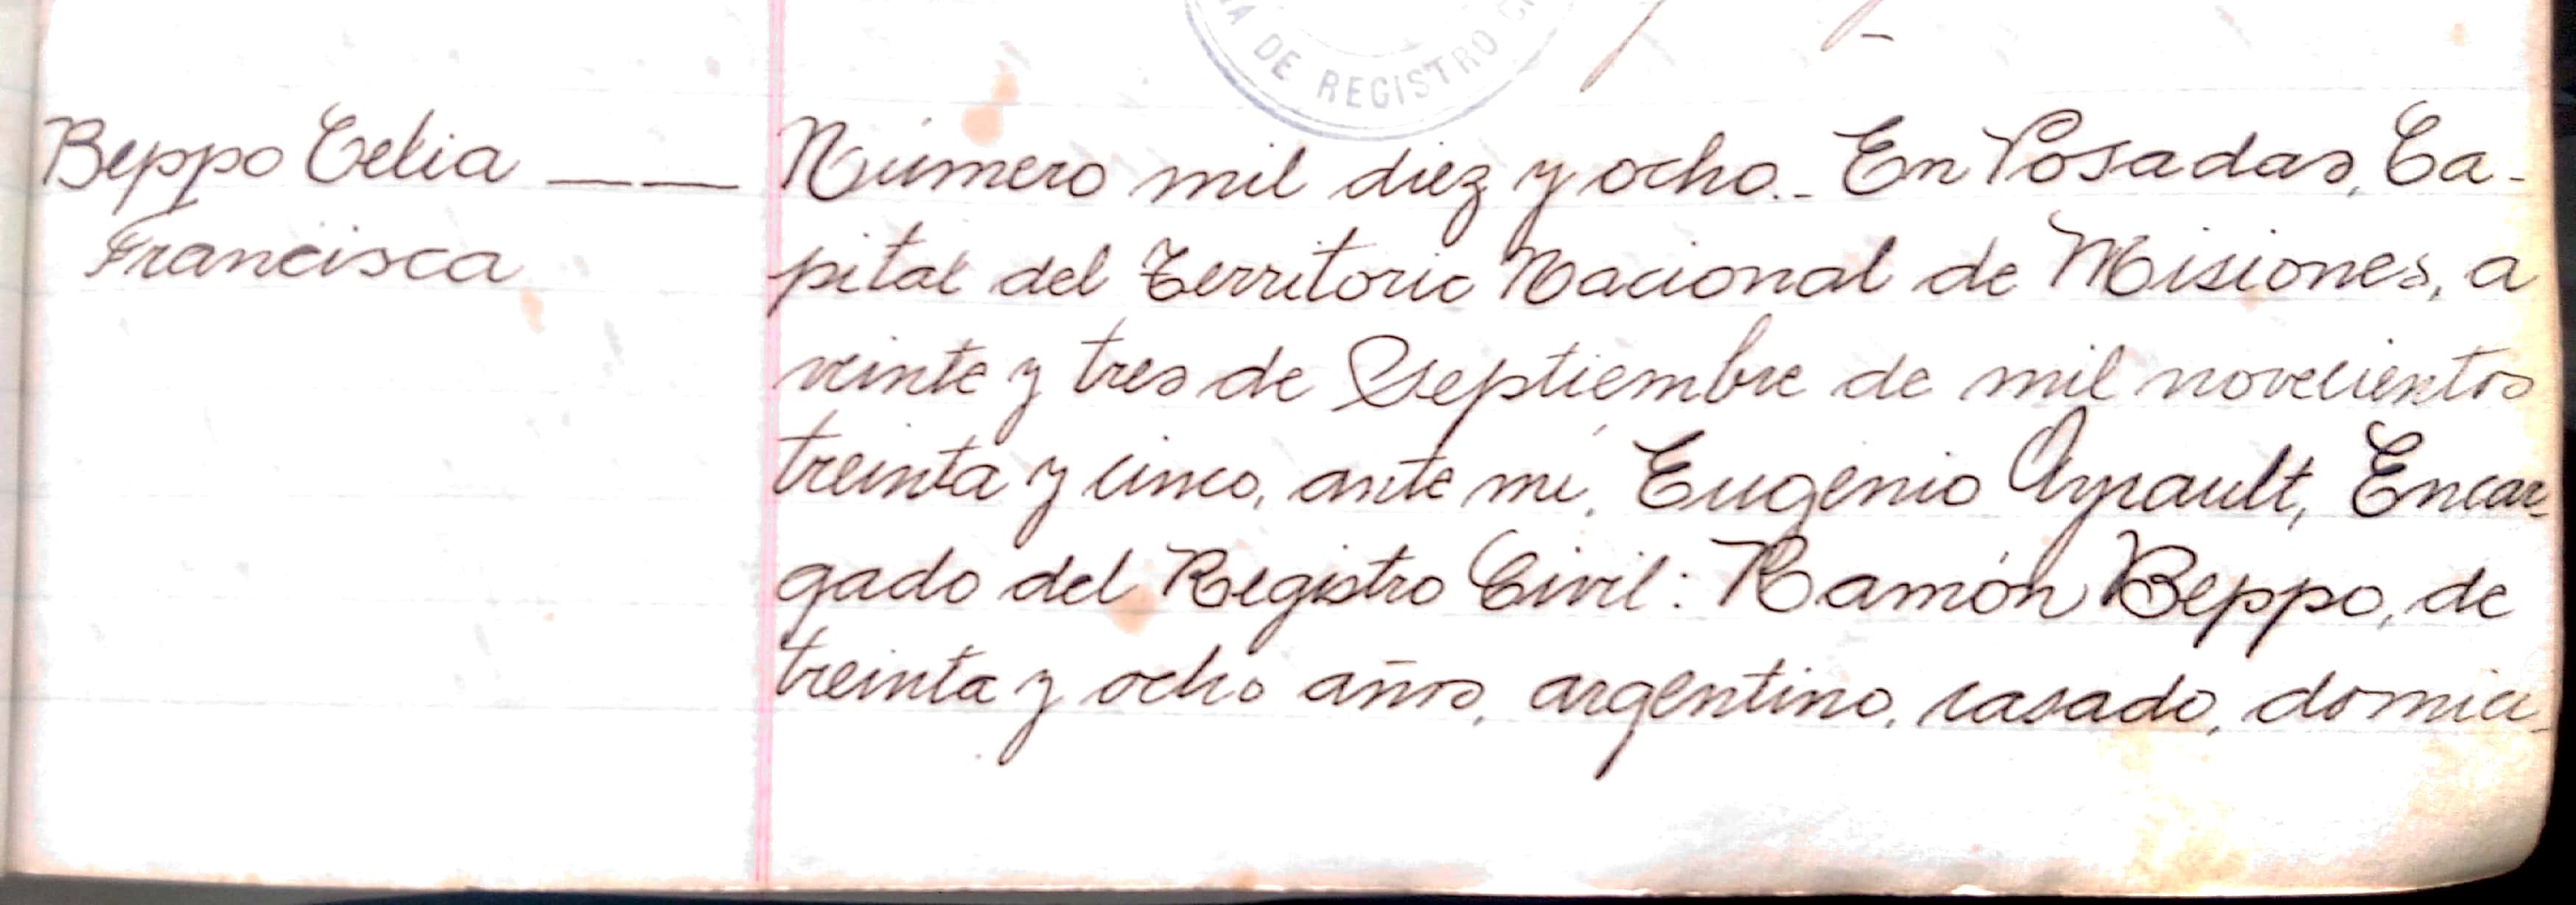 A DE REGISTRO C
Beppo Celia — — Número mil diez y ocho.- En Posadas, Ca-
Francisca pital del Territorio Nacional de Misiones, a
veinte y tres de Septiembre de mil novecientos
treinta y cinco, ante mí, Eugenio Ayrault, Encar-
gado del Registro Civil: Ramón Beppo, de
treinta y ocho años, argentino, casado, domici-